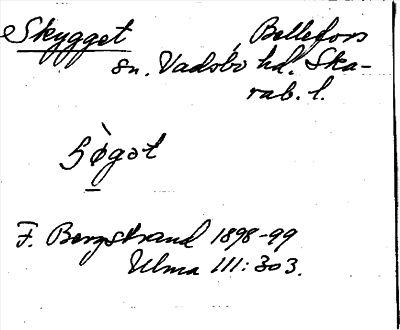 Skygget, Bellefors
sn. Vadsbo hd. Ska-
rab. l.
F. Bergstrand 1898-99
Ulma 111:303.